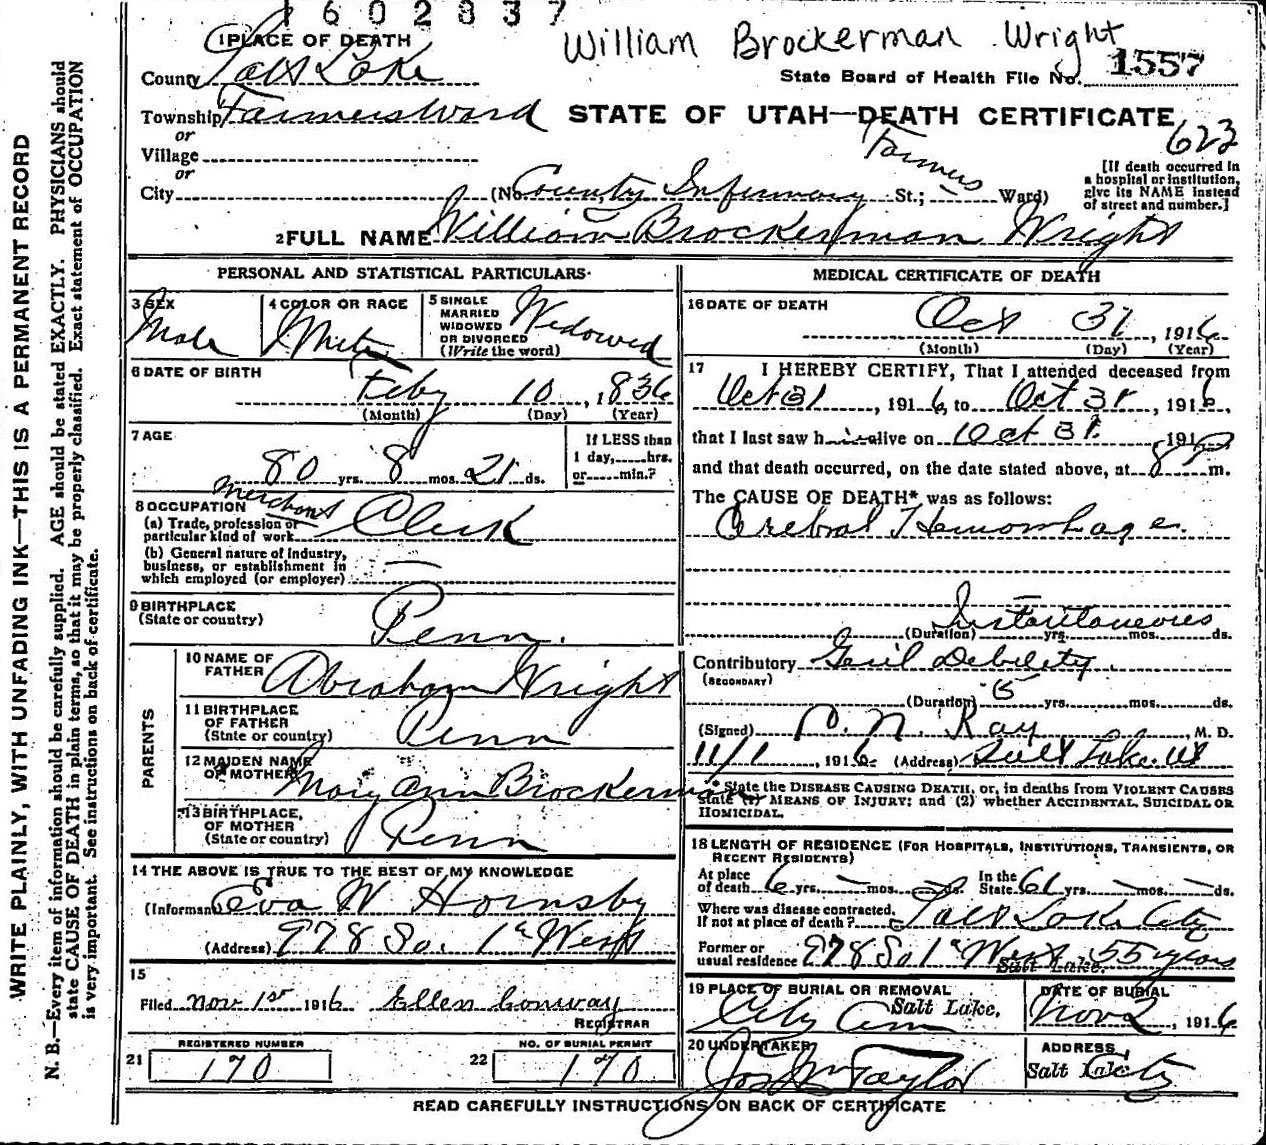 1602837
William Brockerman Wright
1 PLACE OF DEATH
County Salt Lake
State Board of Health File No. 1557
Township Farmers Ward
STATE OF UTAH—DEATH CERTIFICATE
623
or
Village
or
City (No. County Infirmary St.; Farmers Ward)
[If death occurred in a hospital or institution, give its NAME instead of street and number.]
2 FULL NAME William Brockerman Wright
PERSONAL AND STATISTICAL PARTICULARS
3 SEX Male
4 COLOR OR RACE White
5 SINGLE MARRIED WIDOWED OR DIVORCED (Write the word) Widowed
6 DATE OF BIRTH Feby 10, 1836
(Month) (Day) (Year)
7 AGE
80 yrs. 8 mos. 21 ds.
If LESS than 1 day, hrs. or min.?
8 OCCUPATION
(a) Trade, profession or particular kind of work Merchant Clerk
(b) General nature of industry, business, or establishment in which employed (or employer) —
9 BIRTHPLACE (State or country) Penn.
PARENTS
10 NAME OF FATHER Abraham Wright
11 BIRTHPLACE OF FATHER (State or country) Penn
12 MAIDEN NAME OF MOTHER Mary Ann Brockerman
13 BIRTHPLACE OF MOTHER (State or country) Penn
14 THE ABOVE IS TRUE TO THE BEST OF MY KNOWLEDGE
(Informant) Eva W Hornsby
(Address) 978 So. 1st West
15
Filed Nov 1st 1916 Ellen Conway
REGISTRAR
21 REGISTERED NUMBER 170
22 NO. OF BURIAL PERMIT 170
MEDICAL CERTIFICATE OF DEATH
16 DATE OF DEATH Oct 31, 1916
(Month) (Day) (Year)
17 I HEREBY CERTIFY, That I attended deceased from
Oct 31, 1916, to Oct 31, 1916,
that I last saw him alive on Oct 31, 1916
and that death occurred, on the date stated above, at 8 P m.
The CAUSE OF DEATH* was as follows:
Cerebral Hemorrhage.
Instantaneous
(Duration) yrs. mos. ds.
Contributory Genl Debility.
(SECONDARY)
(Duration) 5 yrs. mos. ds.
(Signed) P. N. Ray, M. D.
11/1, 1916 (Address) Salt Lake Ut
* State the DISEASE CAUSING DEATH, or, in deaths from VIOLENT CAUSES
state (1) MEANS OF INJURY; and (2) whether ACCIDENTAL, SUICIDAL OR
HOMICIDAL.
18 LENGTH OF RESIDENCE (FOR HOSPITALS, INSTITUTIONS, TRANSIENTS, OR
RECENT RESIDENTS)
At place of death 6 yrs. — mos. — ds. In the State 61 yrs. — mos. — ds.
Where was disease contracted, If not at place of death? Salt Lake City
Former or usual residence 978 So 1st West 55 years
Salt Lake.
19 PLACE OF BURIAL OR REMOVAL City Cem Salt Lake.
DATE OF BURIAL Nov 2, 1916
20 UNDERTAKER Jos Wm Taylor
ADDRESS Salt Lake City
READ CAREFULLY INSTRUCTIONS ON BACK OF CERTIFICATE
WRITE PLAINLY, WITH UNFADING INK—THIS IS A PERMANENT RECORD
N. B.—Every item of information should be carefully supplied. AGE should be stated EXACTLY. PHYSICIANS should
state CAUSE OF DEATH in plain terms, so that it may be properly classified. Exact statement of OCCUPATION
is very important. See instructions on back of certificate.